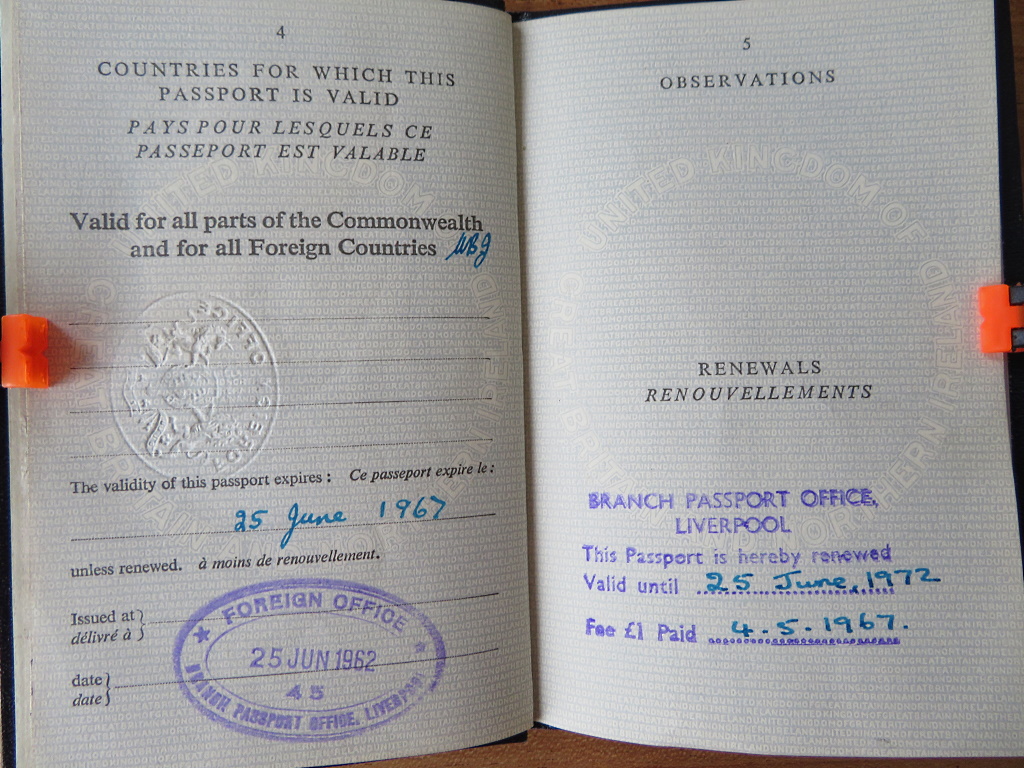 4
COUNTRIES FOR WHICH THIS
PASSPORT IS VALID
PAYS POUR LESQUELS CE
PASSEPORT EST VALABLE
Valid for all parts of the Commonwealth
and for all Foreign Countries
The validity of this passport expires : Ce passeport expire le :
25 June 1967
unless renewed. à moins de renouvellement.
Issued at
délivré à
FOREIGN OFFICE
25 JUN 1962
45
BRANCH PASSPORT OFFICE, LIVERPOOL
date
date
5
OBSERVATIONS
UNITED KINGDOM OF
GREAT BRITAIN
NORTHERN IRELAND
RENEWALS
RENOUVELLEMENTS
BRANCH PASSPORT OFFICE,
LIVERPOOL
This Passport is hereby renewed
Valid until 25 June, 1972
Fee £1 Paid 4.5.1967.